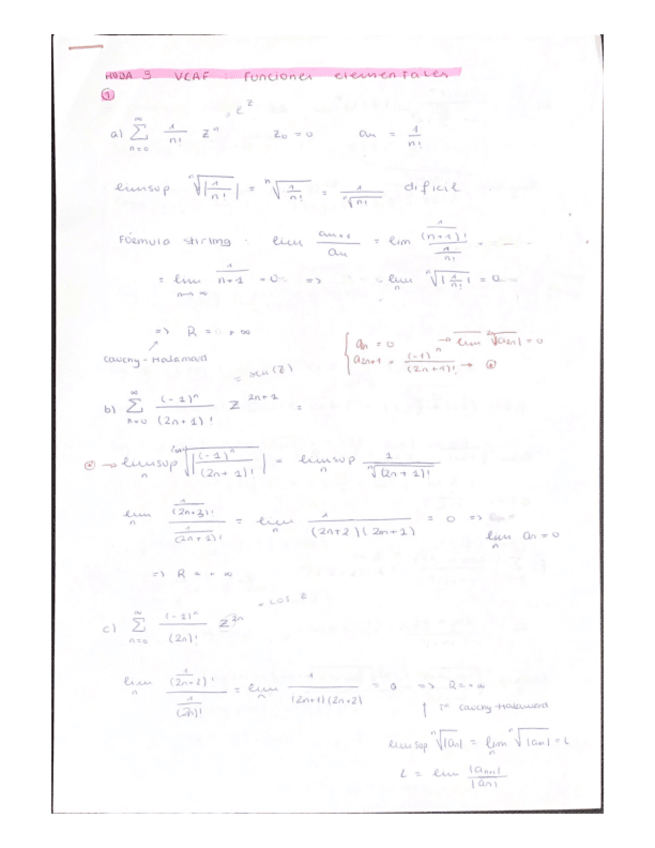 HOJA 3 VCAF : Funciones elementales
①
a) ∑_{n=0}^{∞} 1/n! z^n = e^z z₀ = 0 aₙ = 1/n!
limsup ⁿ√|1/n!| = ⁿ√(1/n!) = 1/ⁿ√n! dificil
Fórmula stirling : lim aₙ₊₁/aₙ = lim (1/(n+1)!)/(1/n!) =
= lim_{n→∞} 1/(n+1) = 0 => lim_n ⁿ√|1/n!| = 0
=> R = + ∞
Cauchy - Hadamard
{ a₂ₙ = 0 → lim ²ⁿ√|a₂ₙ| = 0
a₂ₙ₊₁ = (-1)^n/(2n+1)! → ⊛
= sen(z)
b) ∑_{n=0}^{∞} (-1)^n/(2n+1)! z^{2n+1} =
⊛ → limsup_n ²ⁿ⁺¹√|(-1)^n/(2n+1)!| = limsup_n 1/ⁿ√(2n+1)!
lim_n (1/(2n+3)!)/(1/(2n+1)!) = lim_n 1/((2n+2)(2n+1)) = 0 =>
lim_n aₙ = 0
=> R = + ∞
= cos z
c) ∑_{n=0}^{∞} (-1)^n/(2n)! z^{2n}
lim (1/(2n+2)!)/(1/(2n)!) = lim 1/((2n+1)(2n+2)) = 0 => R = + ∞
↑ Cauchy-Hadamard
limsup ⁿ√|aₙ| = lim_n ⁿ√|aₙ| = L
L = lim |aₙ₊₁|/|aₙ|